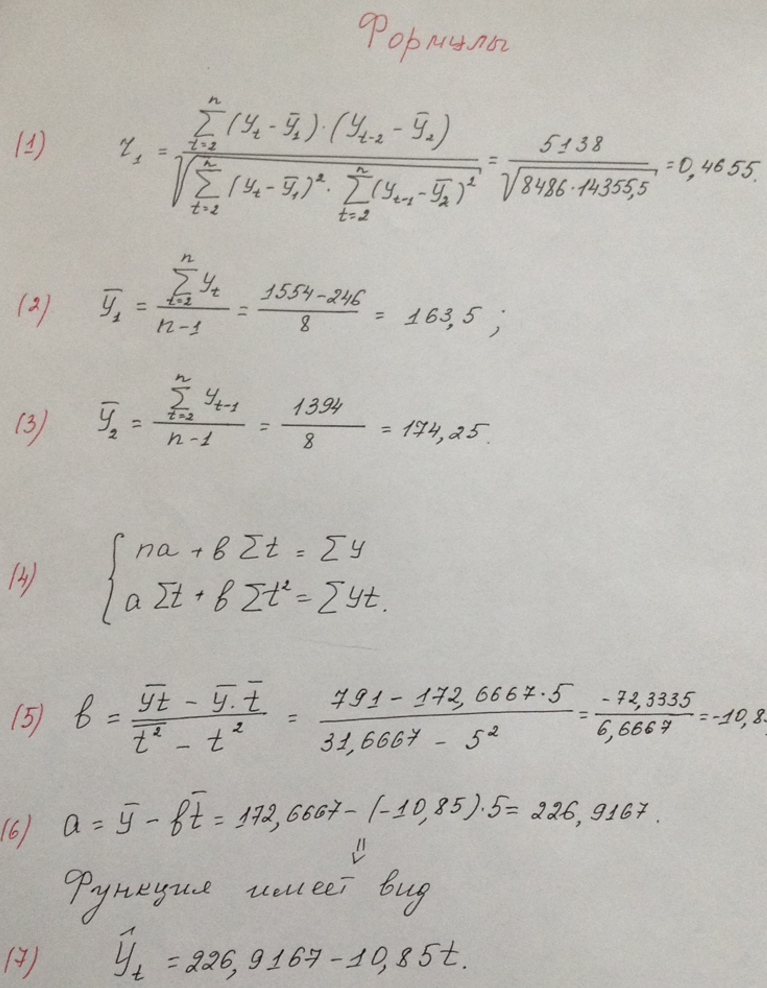 Формулы
(1) r₁ = \frac{\sum_{t=2}^{n} (y_t - \bar{y}_1) \cdot (y_{t-2} - \bar{y}_2)}{\sqrt{\sum_{t=2}^{n} (y_t - \bar{y}_1)^2 \cdot \sum_{t=2}^{n} (y_{t-1} - \bar{y}_2)^2}} = \frac{5138}{\sqrt{8486 \cdot 14355,5}} = 0,4655.
(2) \bar{y}_1 = \frac{\sum_{t=2}^{n} y_t}{n-1} = \frac{1554-246}{8} = 163,5 ;
(3) \bar{y}_2 = \frac{\sum_{t=2}^{n} y_{t-1}}{n-1} = \frac{1394}{8} = 174,25.
(4) { na + b Σt = Σy
a Σt + b Σt² = Σyt.
(5) b = \frac{\overline{yt} - \bar{y} \cdot \bar{t}}{\overline{t^2} - t^2} = \frac{791 - 172,6667 \cdot 5}{31,6667 - 5^2} = \frac{-72,3335}{6,6667} = -10,8
(6) a = \bar{y} - b\bar{t} = 172,6667 - (-10,85)·5 = 226,9167.
⇓
Функция имеет вид
(7) \hat{y}_t = 226,9167 - 10,85t.